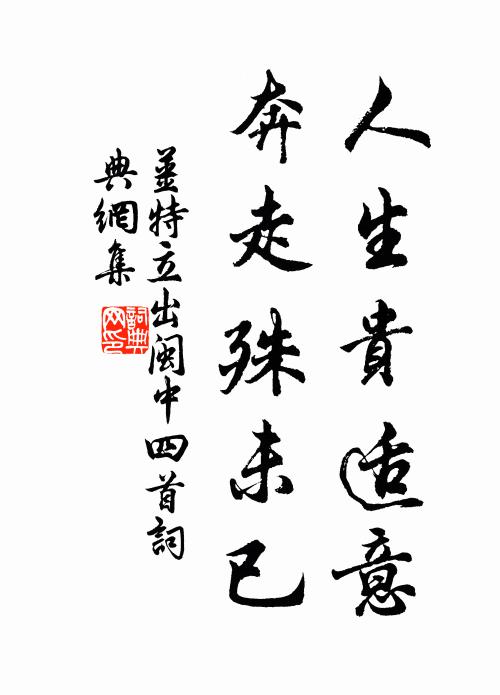 人生貴适意
奔走殊未已
姜特立出閩中四首詞
典網集
詞典
网印